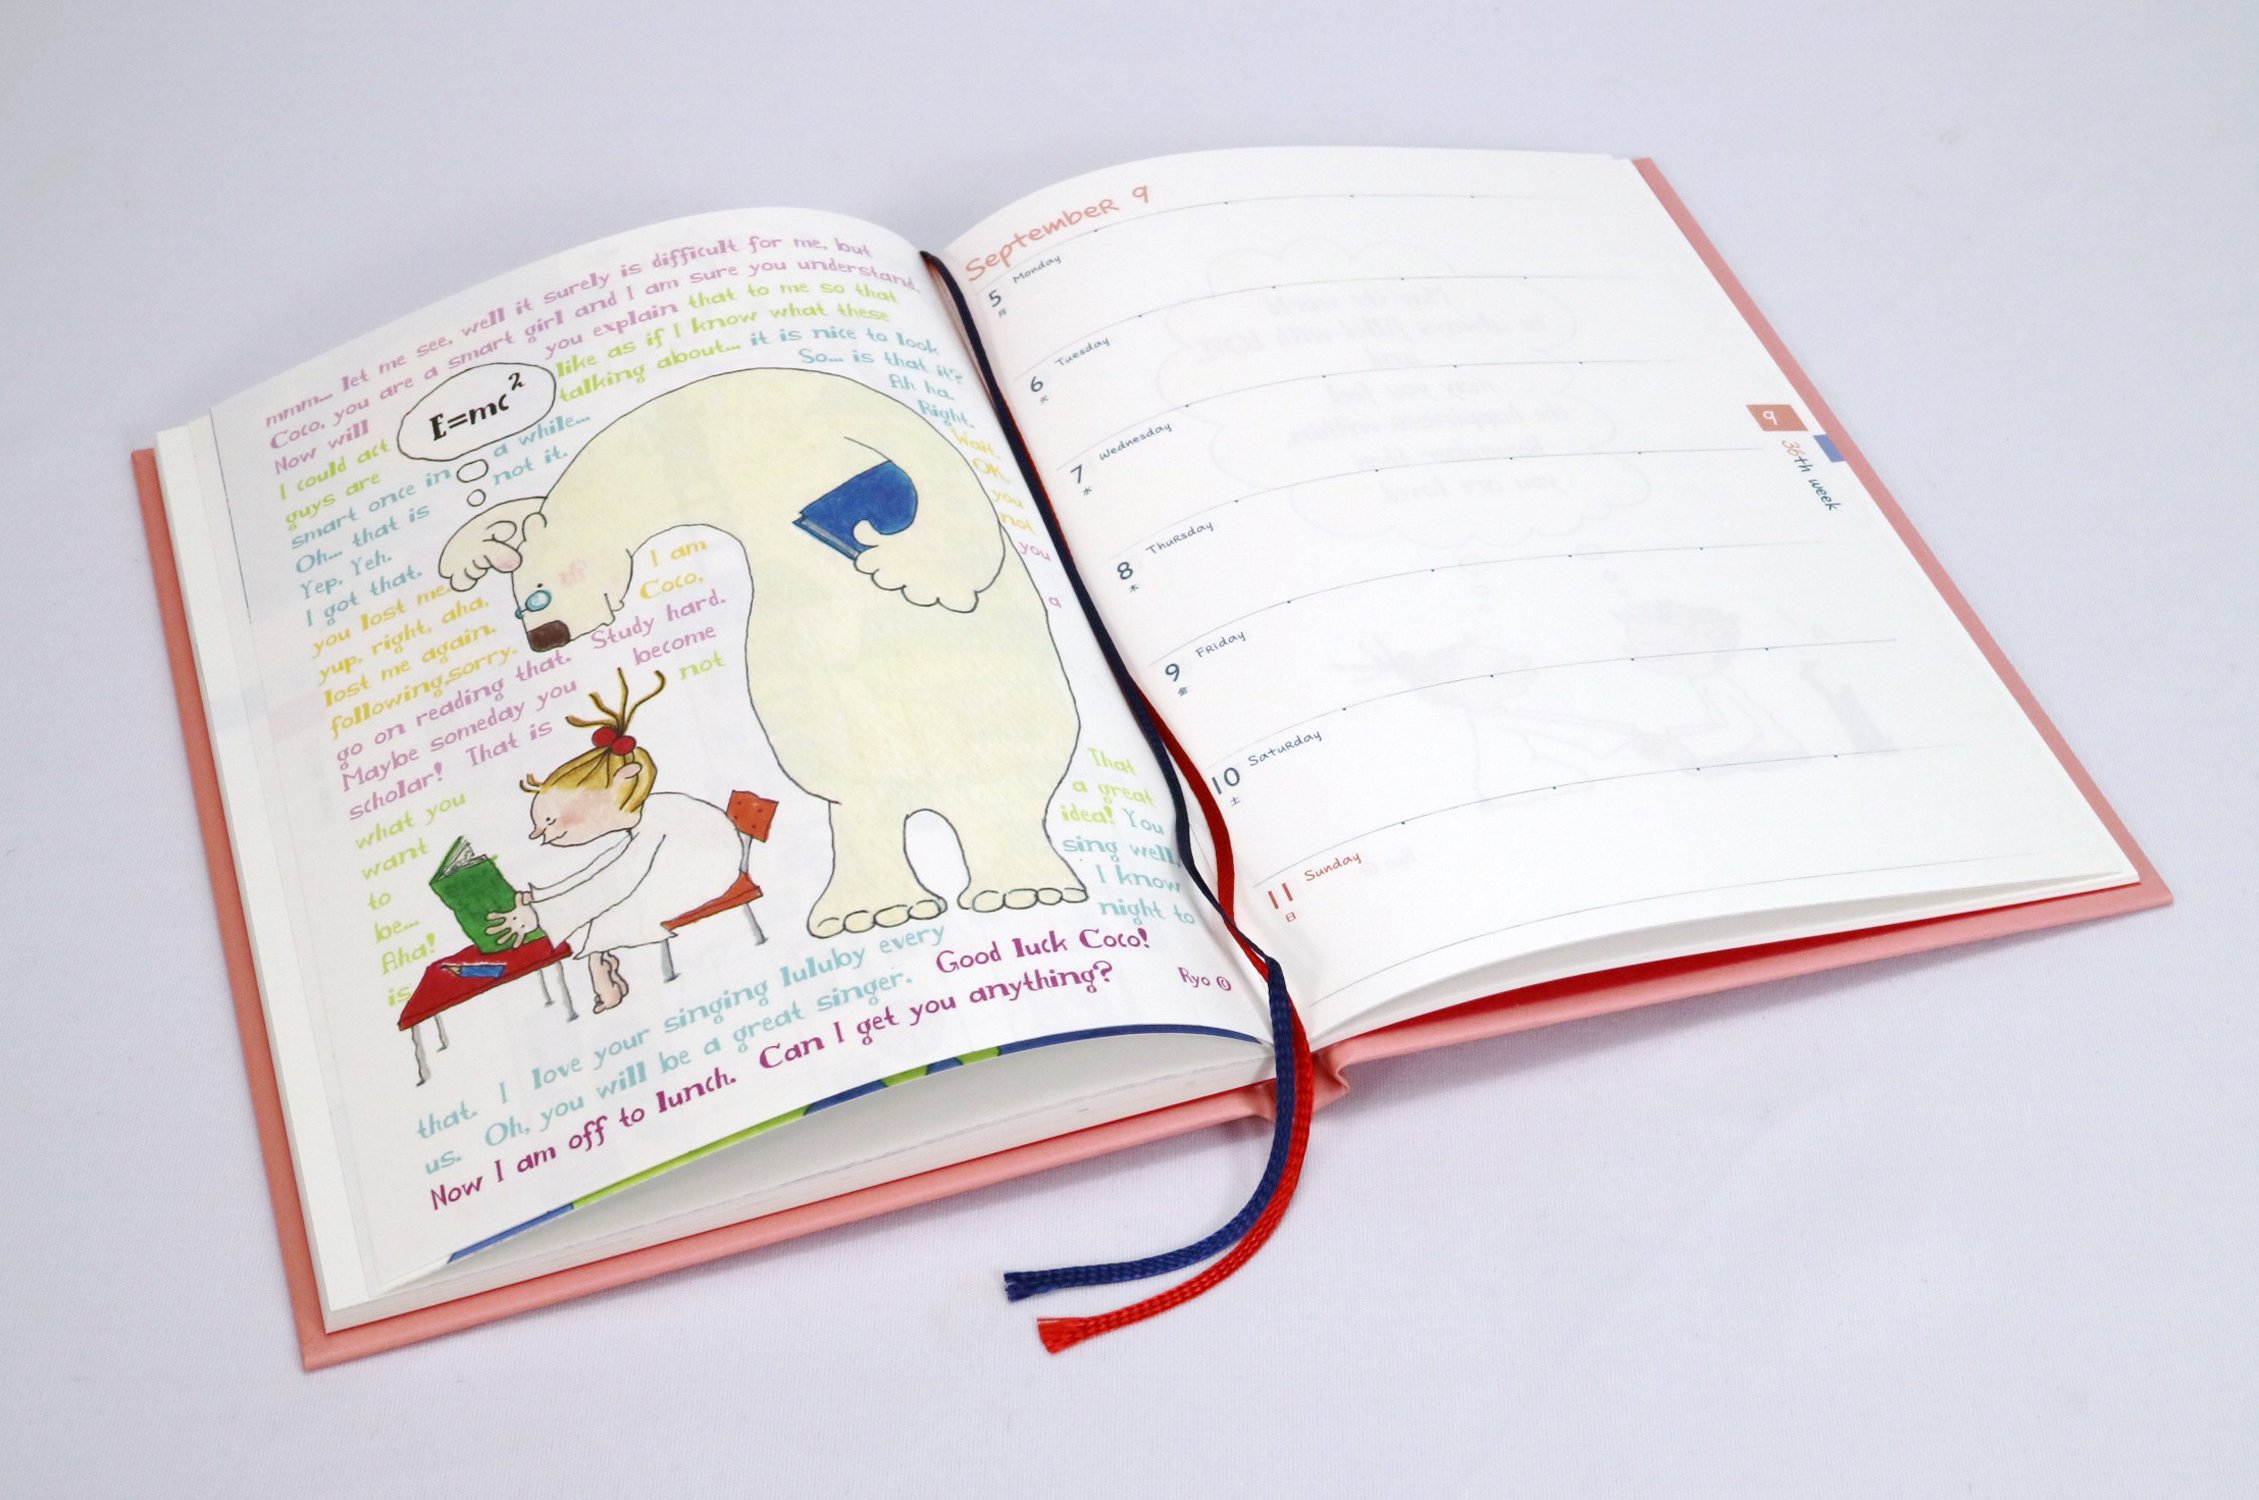 mmm... let me see, well it surely is difficult for me, but
Coco, you are a smart girl and I am sure you understand.
Now will you explain that to me so that
I could act like as if I know what these
guys are talking about... it is nice to look
smart once in a while... So... is that it?
Oh... that is not it. Ah ha.
Yep, Yeh. Right.
I got that. Wait.
you lost me. OK,
yup, right, aha, you
lost me again. I am not
following,sorry. Coco, you
go on reading that. Study hard.
Maybe someday you become a
scholar! That is not
what you
want
to
be...
Aha! That
is a great
idea! You
sing well,
I know
that. I love your singing luluby every night to
us. Oh, you will be a great singer. Good luck Coco!
Now I am off to lunch. Can I get you anything?
Ryo ©
E=mc²
September 9
5 Monday
月
6 Tuesday
火
7 Wednesday
水
8 Thursday
木
9 Friday
金
10 Saturday
土
11 Sunday
日
9
36th week